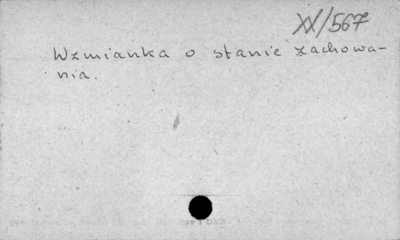 XX/567
Wzmianka o stanie zachowa-
nia.